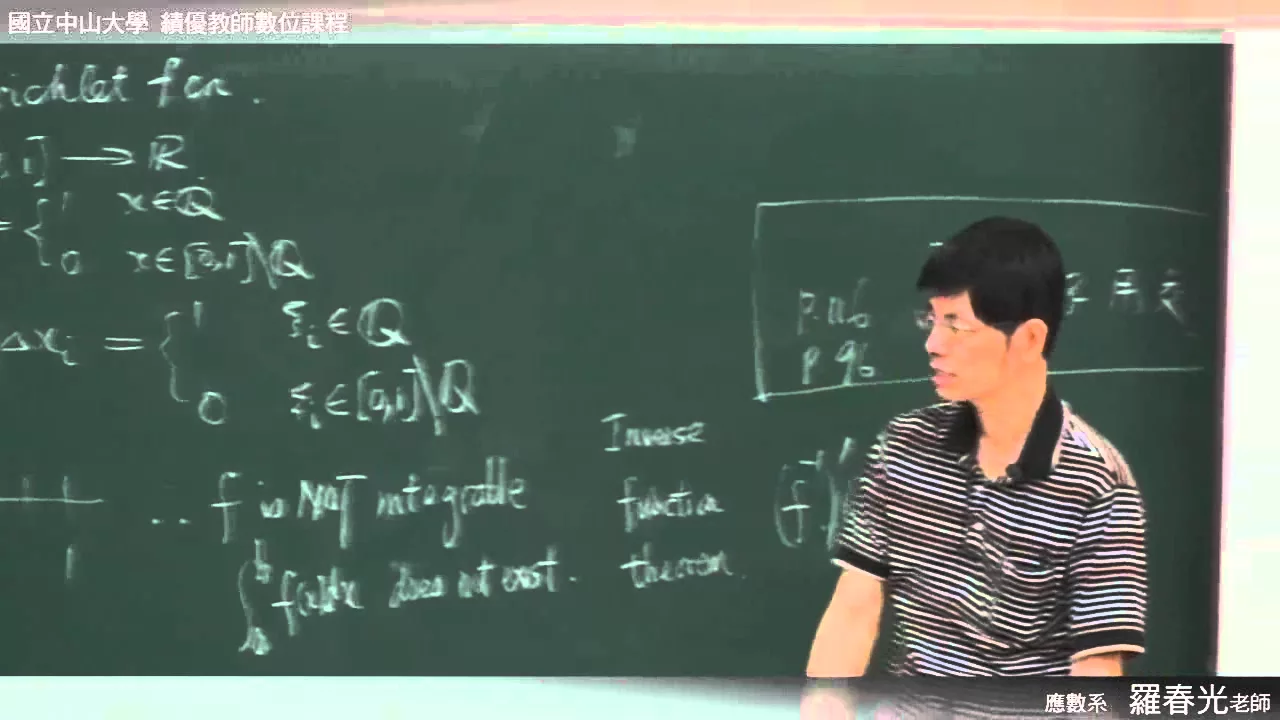 國立中山大學 績優教師數位課程
richlet fcn.
,1] → ℝ
= { 1 x ∈ ℚ
0 x ∈ [0,1]\ℚ
Δxᵢ = { 1 ξᵢ ∈ ℚ
0 ξᵢ ∈ [0,1]\ℚ
∴ f is NOT integrable
∫ f(x)dx does not exist.
Inverse
function
theorem.
(f⁻¹)'
p. 116
p 96
用
應數系 羅春光老師